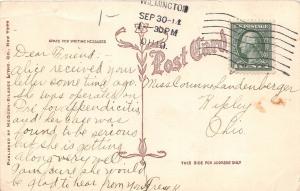 WILMINGTON
SEP 30
30PM
OHIO.
SPACE FOR WRITING MESSAGES
Post Card
Dear Friend.
Alice received your
letter some time ago.
She was operated on
for appendicitis
and her case was
found to be serious
but she is getting
along very well.
I am sure she would
be glad to hear from you
Miss Landenberger
Ripley
Ohio.
THIS SIDE FOR ADDRESS ONLY
PUBLISHED BY MCGOWN-SILSBEE LITHO. CO. NEW YORK